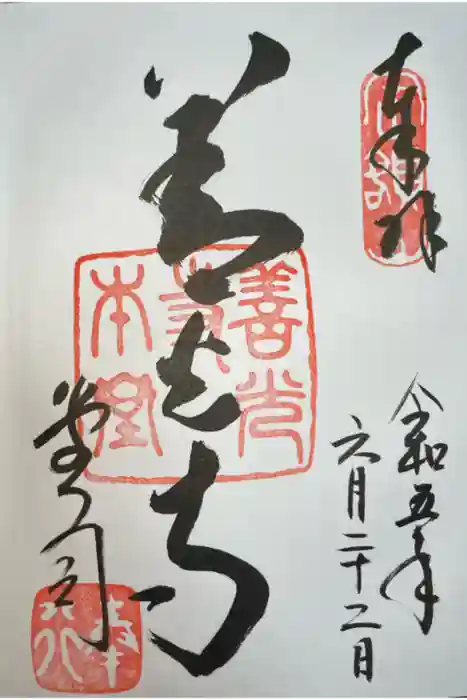 奉拝
令和五年
六月二十二日
善光寺
堂司
善光
本堂